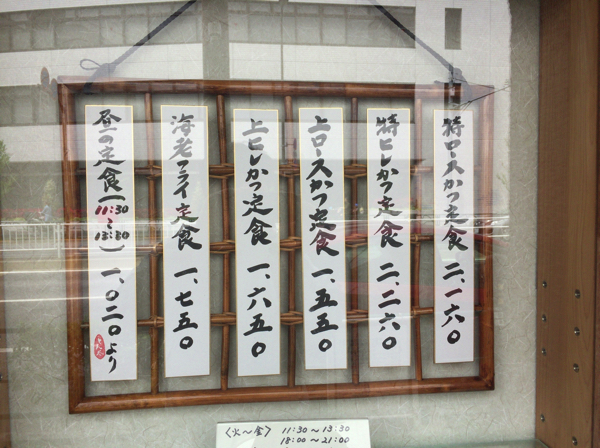 特ロースかつ定食 二、一六〇
特ヒレかつ定食 二、二六〇
上ロースかつ定食 一、五五〇
上ヒレかつ定食 一、六五〇
海老フライ定食 一、七五〇
昼の定食(11:30~13:30) 一、〇二〇より
〈火～金〉 11:30～13:30
18:00～21:00